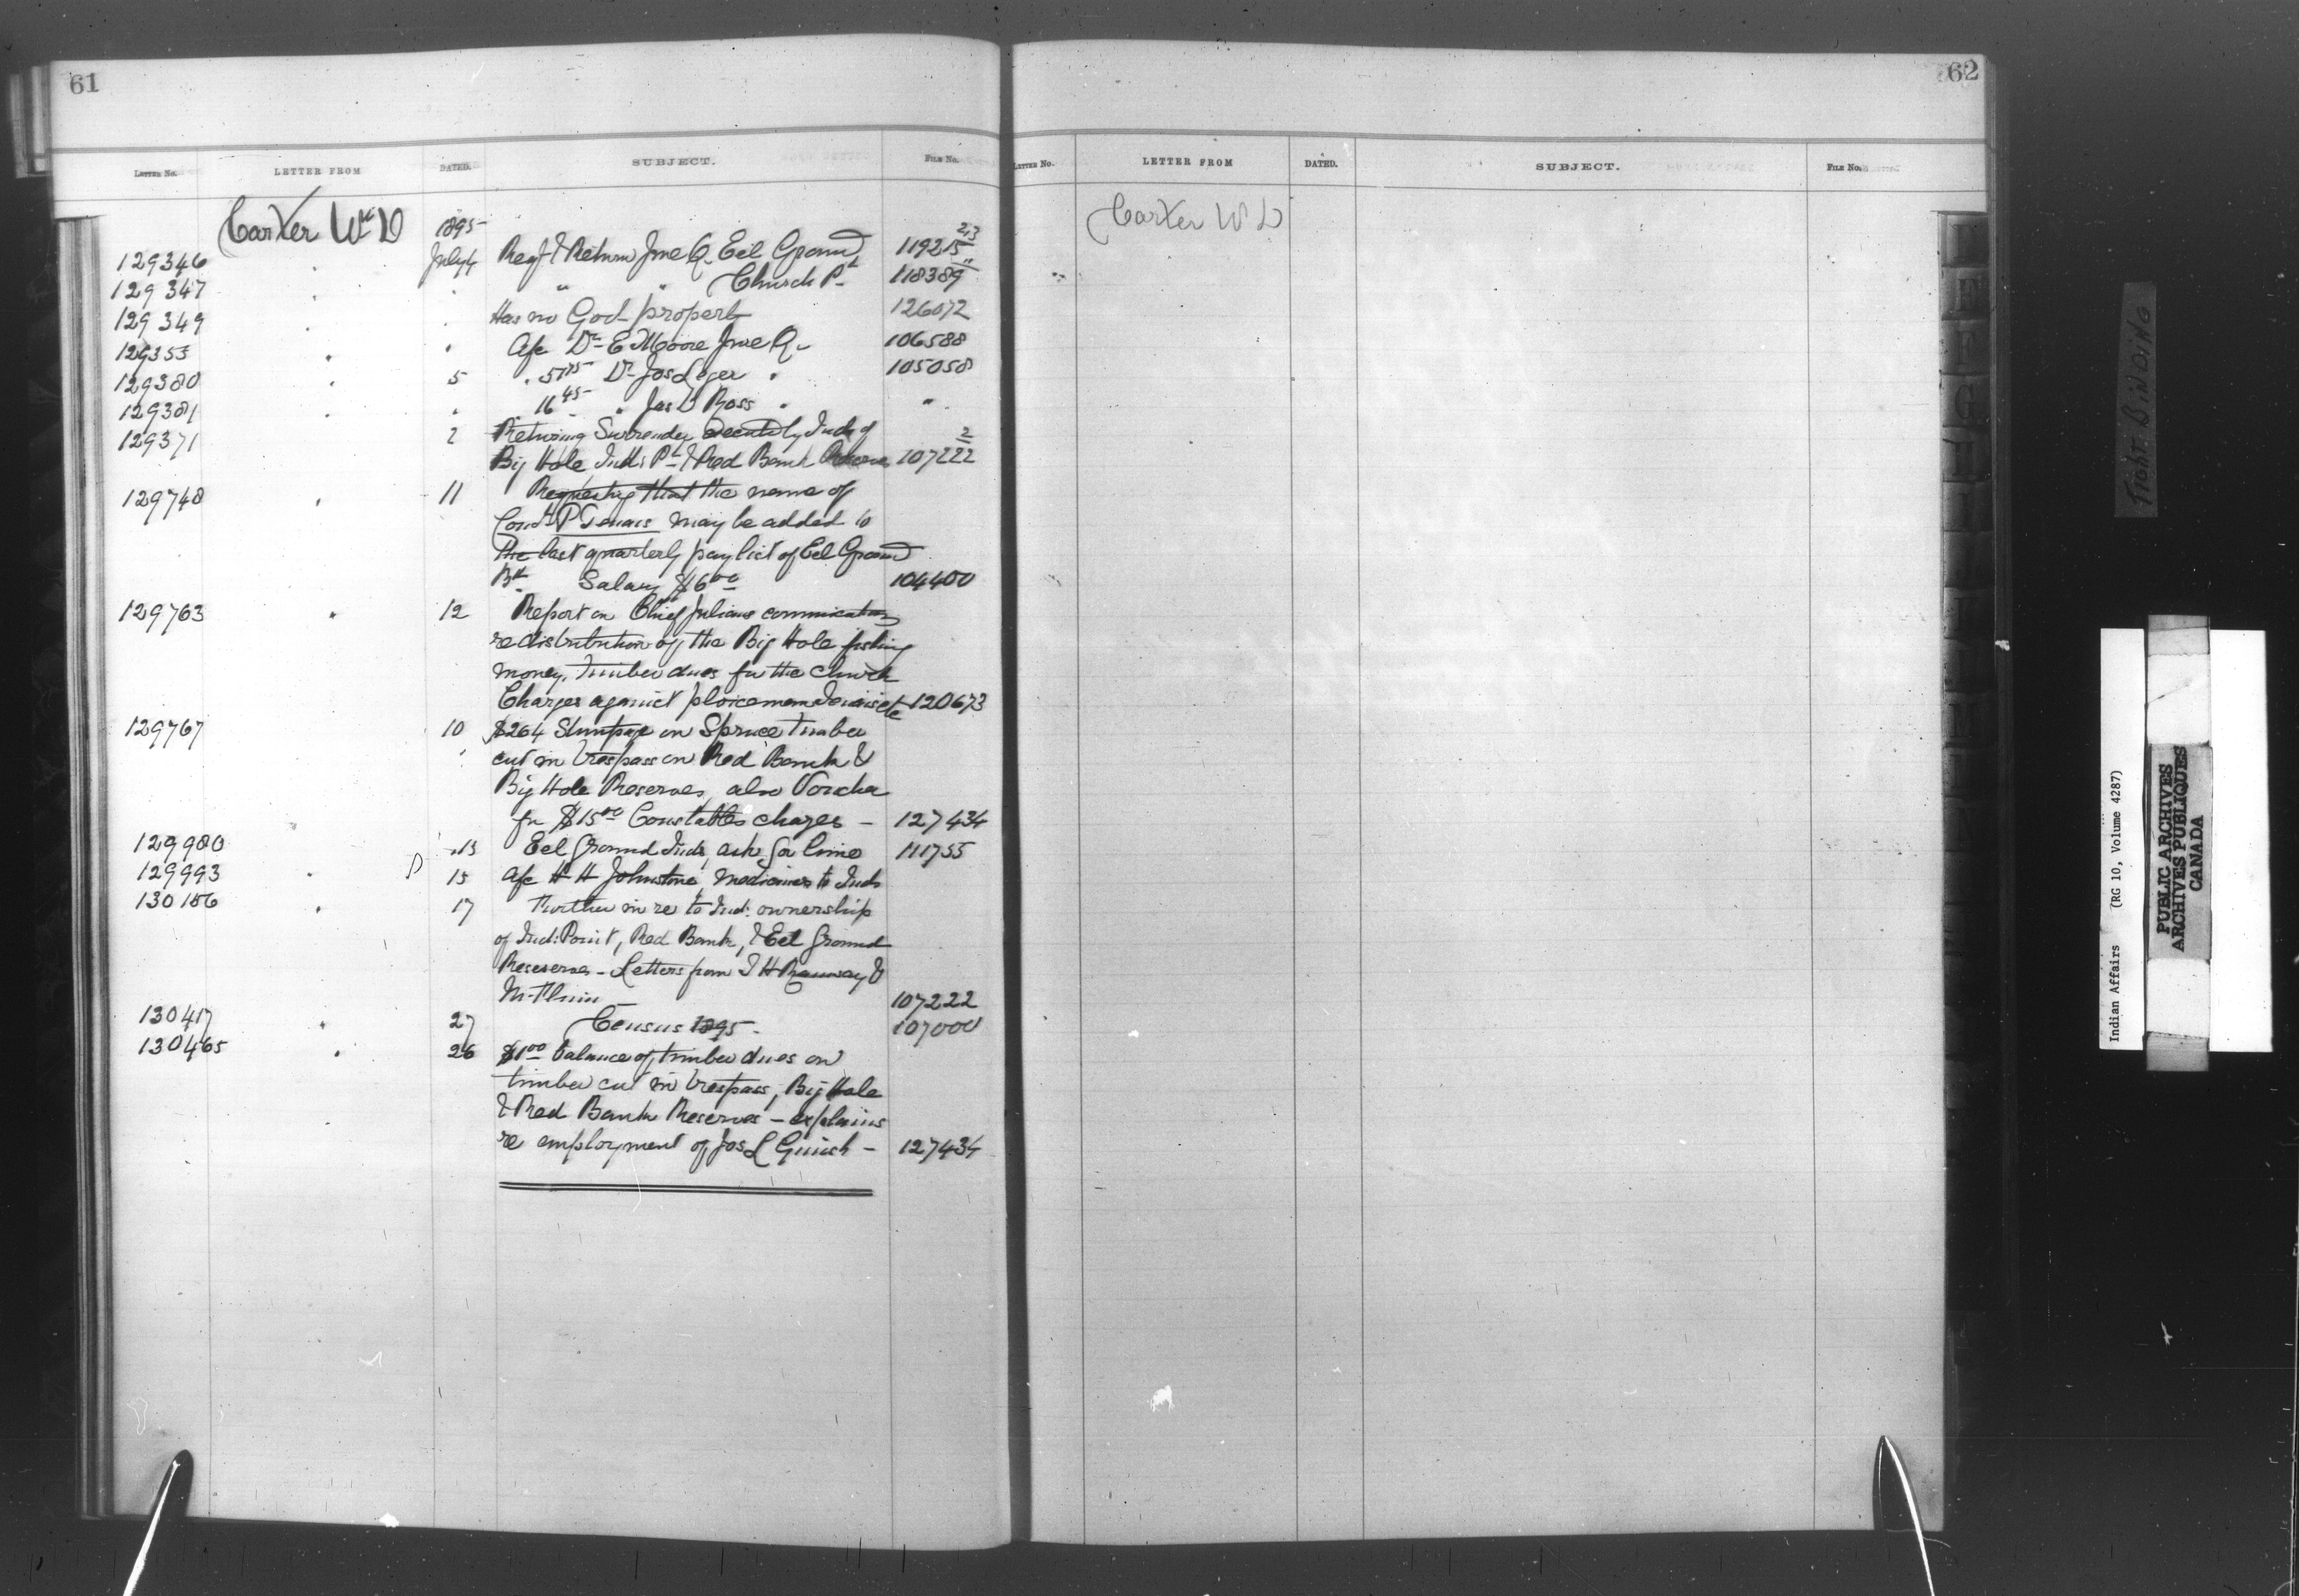 61
LETTER NO. LETTER FROM DATED. SUBJECT. FILE NO.
Carter Wm D 1895
129346 " July 4 Reqt & Return June Q. Eel Ground 119215 2/3
129347 " " " " Church Pt 118389 "
129349 " " Has no Govt property 126072
129353 " " a/c Dr E Moore June Q. 106588
129380 " 5 " Dr Jos Leger " 105058
129381 " " 16 45 " Jas D Ross " "
129371 2 Returning Surrender executed by Inds of 2
Big Hole Indn Pt & Red Bank Reserves 107222
129748 " 11 Requesting that the name of
Const P Tenass may be added to
the last quarterly pay list of Eel Ground
Bd. Salary $6 00 104400
129763 " 12 Report on Chief Julians communication
re distribution of the Big Hole fishing
money, timber dues for the Church
Charges against ploiceman etc 120673
129767 10 $264 Stumpage on Spruce timber
cut in trespass on Red Bank &
Big Hole Reserves, also Voucher
for $15 00 Constables charges – 127434
129980 " 13 Eel Ground Inds ask for lime 111755
129993 " D 15 a/c H H Johnstone, medicines to Inds
130156 " 17 Further in re to Ind: ownership
of Ind: Point, Red Bank, & Eel Ground
Reserves – Letters from &
107222
130417 " 27 Census 1895 – 107000
130465 " 26 $1 00 balance of timber dues on
timber cut in trespass, Big Hole
& Red Bank Reserves – explains
re employment of Jos L – 127434
62
LETTER NO. LETTER FROM DATED. SUBJECT. FILE NO.
Carter W D
TIGHT BINDING
Indian Affairs (RG 10, Volume 4287)
PUBLIC ARCHIVES
ARCHIVES PUBLIQUES
CANADA